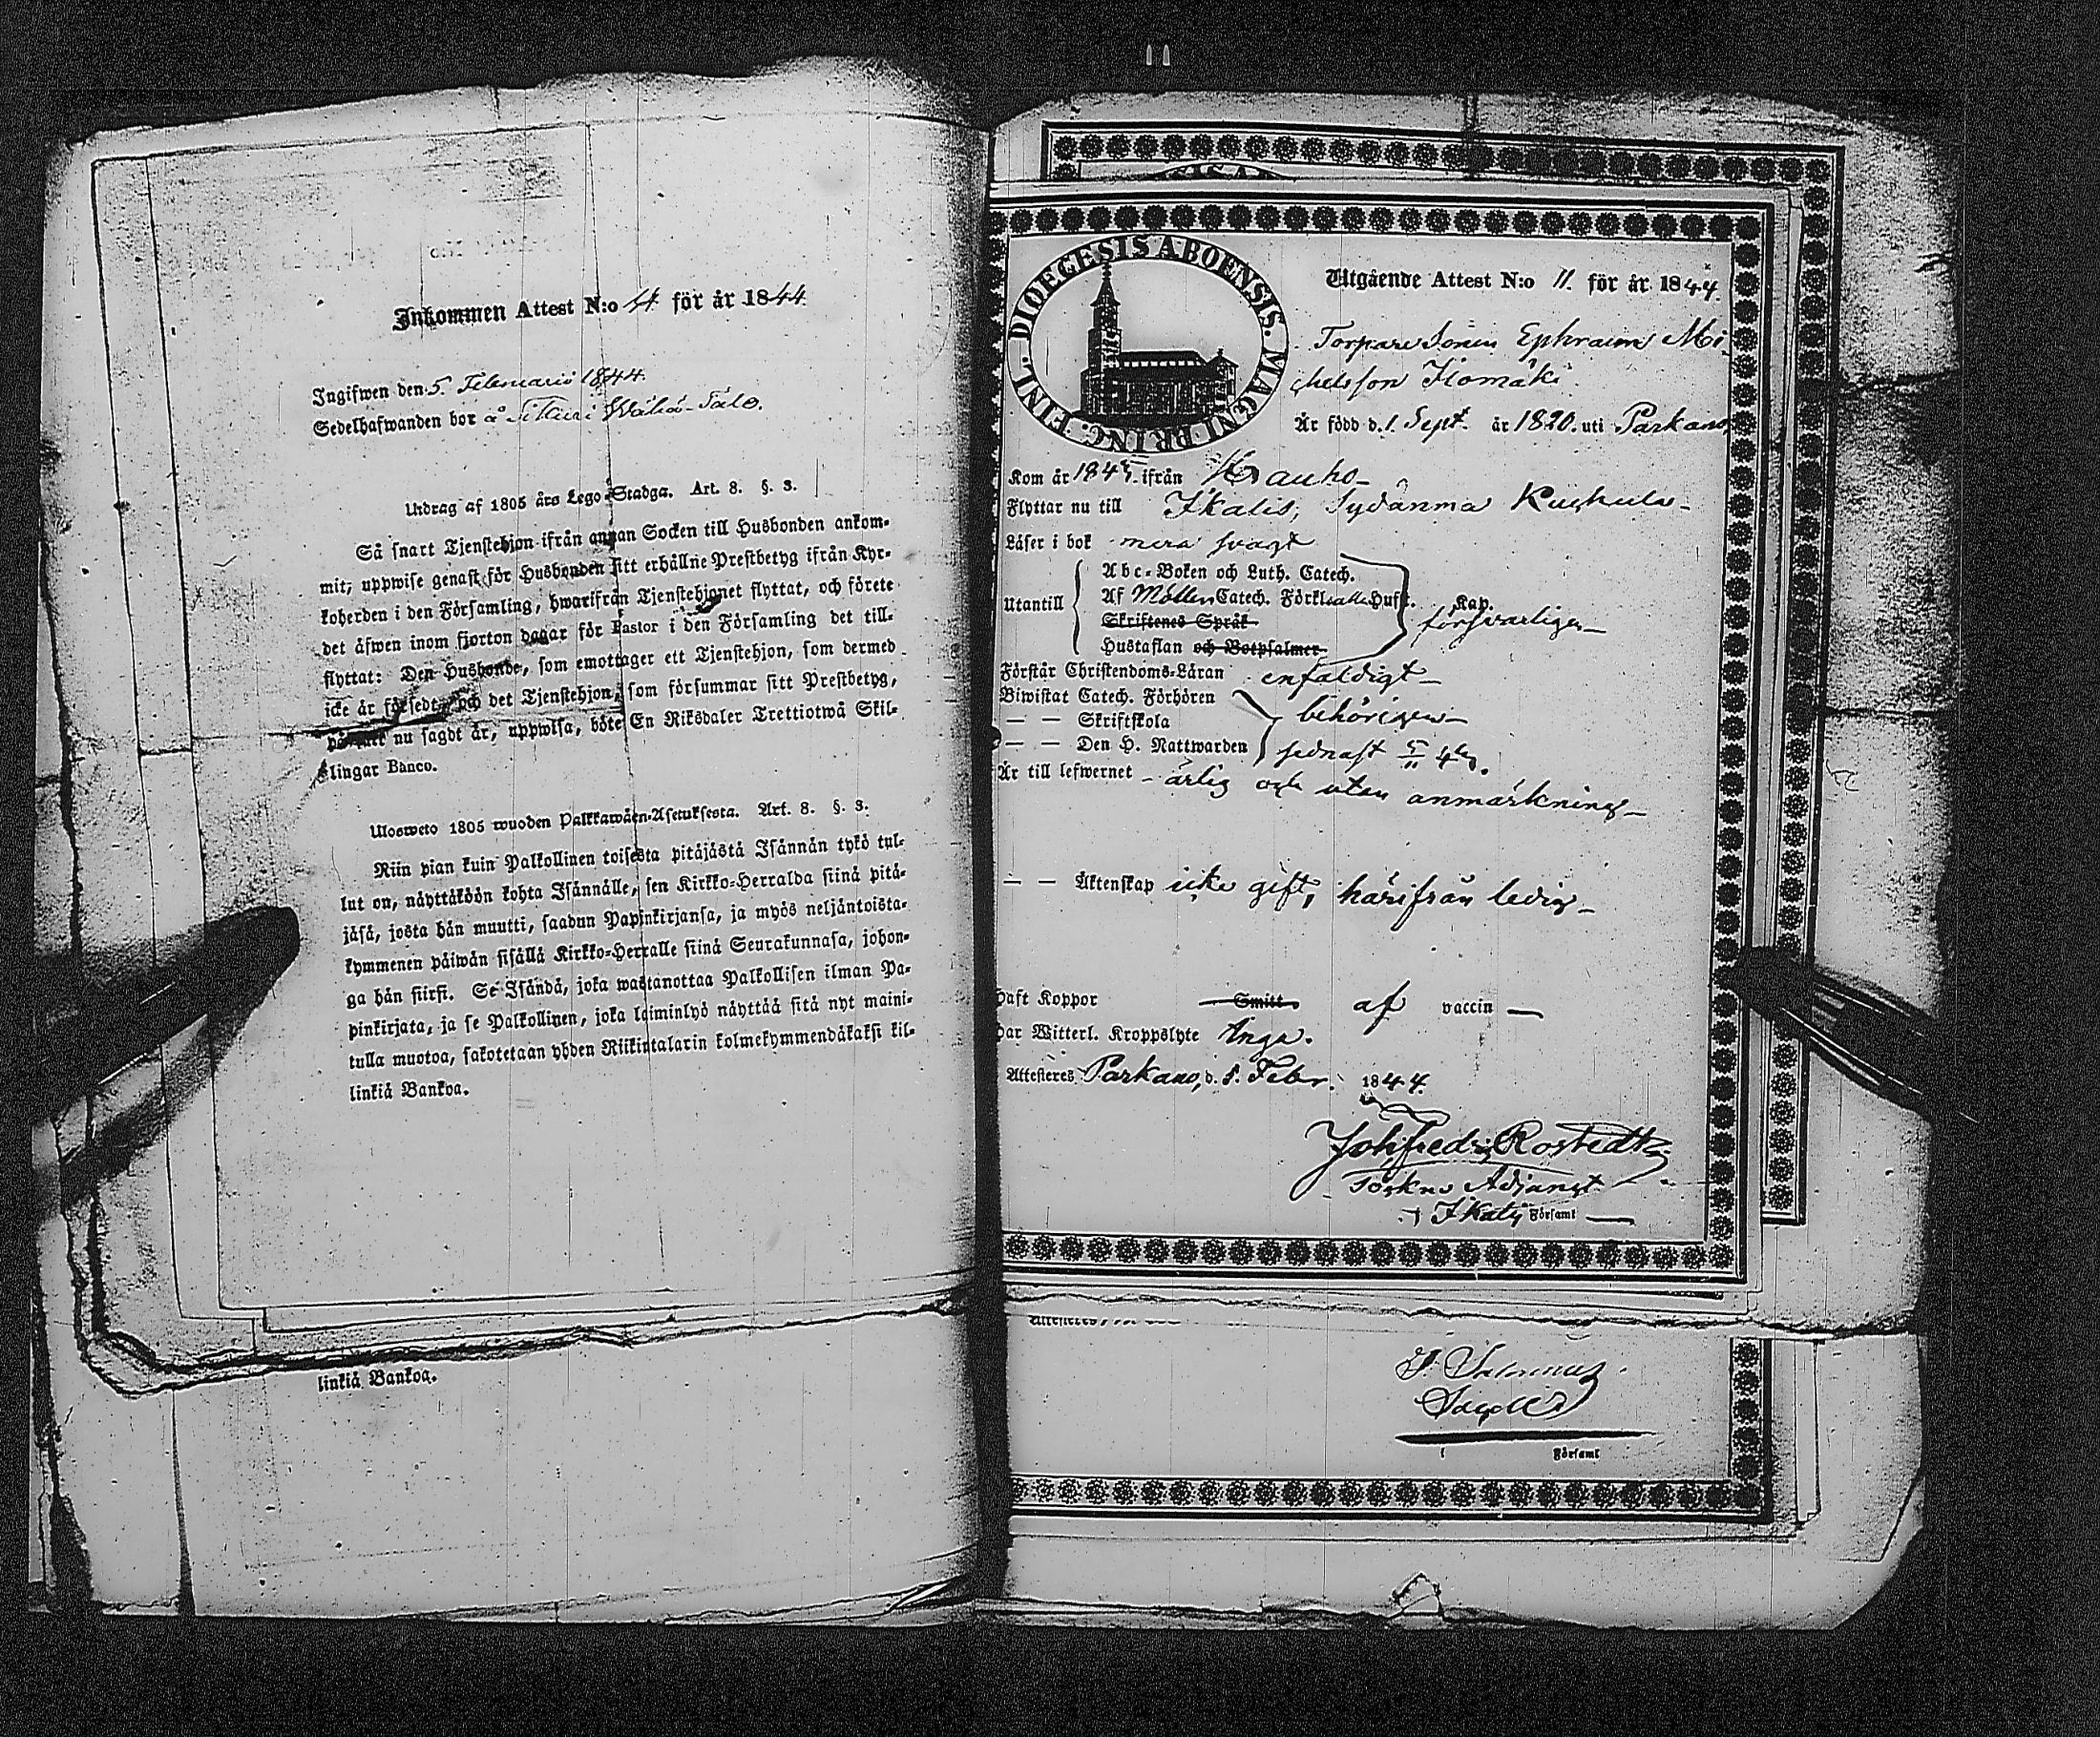 Inkommen Attest N:o för år 1844.
Ingifwen den 5 Februarii 1844.
Sedelhafwanden bor å Wähä-Talo.
Utdrag af 1805 års Lego-Stadga. Art. 8. §. 3.
Så snart Tjenstehjon ifrån annan Socken till Husbonden ankom-
mit, uppwise genast för Husbonden sitt erhållne Prestbetyg ifrån Kyr-
koherden i den Församling, hwarifrån Tjenstehjonet flyttat, och förete
det äfwen inom fjorton dagar för Pastor i den Församling det till-
flyttat: Den Husbonde, som emottager ett Tjenstehjon, som dermed
icke är försedt, och det Tjenstehjon, som försummar sitt Prestbetyg,
på sätt nu sagdt är, uppwisa, böte En Riksdaler Trettiotwå Skil-
lingar Banco.
Ulosweto 1805 wuoden Palkkawäen-Asetuksesta. Art. 8. §. 3.
Niin pian kuin Palkollinen toisesta pitäjästä Isännän tykö tul-
lut on, näyttäköön kohta Isännälle, sen Kirkko-Herralda siinä pitä-
jäsä, josta hän muutti, saadun Papinkirjansa, ja myös neljäntoista-
kymmenen päiwän sisällä Kirkko-Herralle siinä Seurakunnasa, johon-
ga hän siirsi. Se Isändä, joka wastanottaa Palkollisen ilman Pa-
pinkirjata, ja se Palkollinen, joka laiminlyö näyttää sitä nyt maini-
tulla muotoa, sakotetaan yhden Riikintalarin kolmekymmendäkaksi kil-
linkiä Bankoa.
linkiä Bankoa.
FINL. DIOECESIS ABOENSIS. MAGNI PRINC.
Utgående Attest N:o 11. för år 1844.
Torpare Sonen Ephraim Mi-
chelsson Ilomäki
Är född d. 1. Sept. år 1820. uti Parkano,
Kom år 184 ifrån
Flyttar nu till Ikalis, Sydänmä
Läser i bok mera svagt
Utantill
Abc-Boken och Luth. Catech.
Af Möllers Catech. Förkl. Husf. Kap.
Skriftenes Språk
försvarligen
Hustaflan och Botpsalmer
Förstår Christendoms-Läran enfaldigt
Biwistat Catech. Förhören
— — Skriftskola
behörigen
— — Den H. Nattwarden sednast
Är till lefwernet ärlig och utan anmärkning
— — Äktenskap icke gift, härifrån ledig
Haft Koppor Smitt af vaccin
Har Witterl. Kroppslyte Inga.
Attesteras Parkano, d. 5. Febr. 1844.
Joh. Fredr. Rostedt
Adjunct
i Ikalis Församl
Attesteras,
i Församl